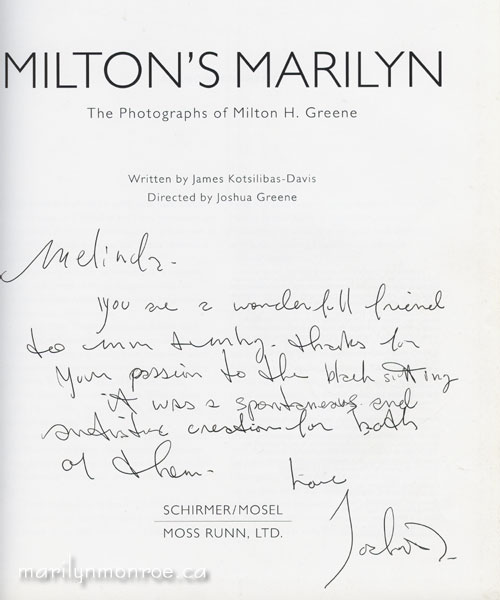 MILTON'S MARILYN
The Photographs of Milton H. Greene
Written by James Kotsilibas-Davis
Directed by Joshua Greene
Melinda-
You are a wonderfull friend
to thanks for
Your passion to the black sitting
it was a spontaneous and
creation for both
of them-
love
SCHIRMER/MOSEL
MOSS RUNN, LTD.
marilynmonroe.ca